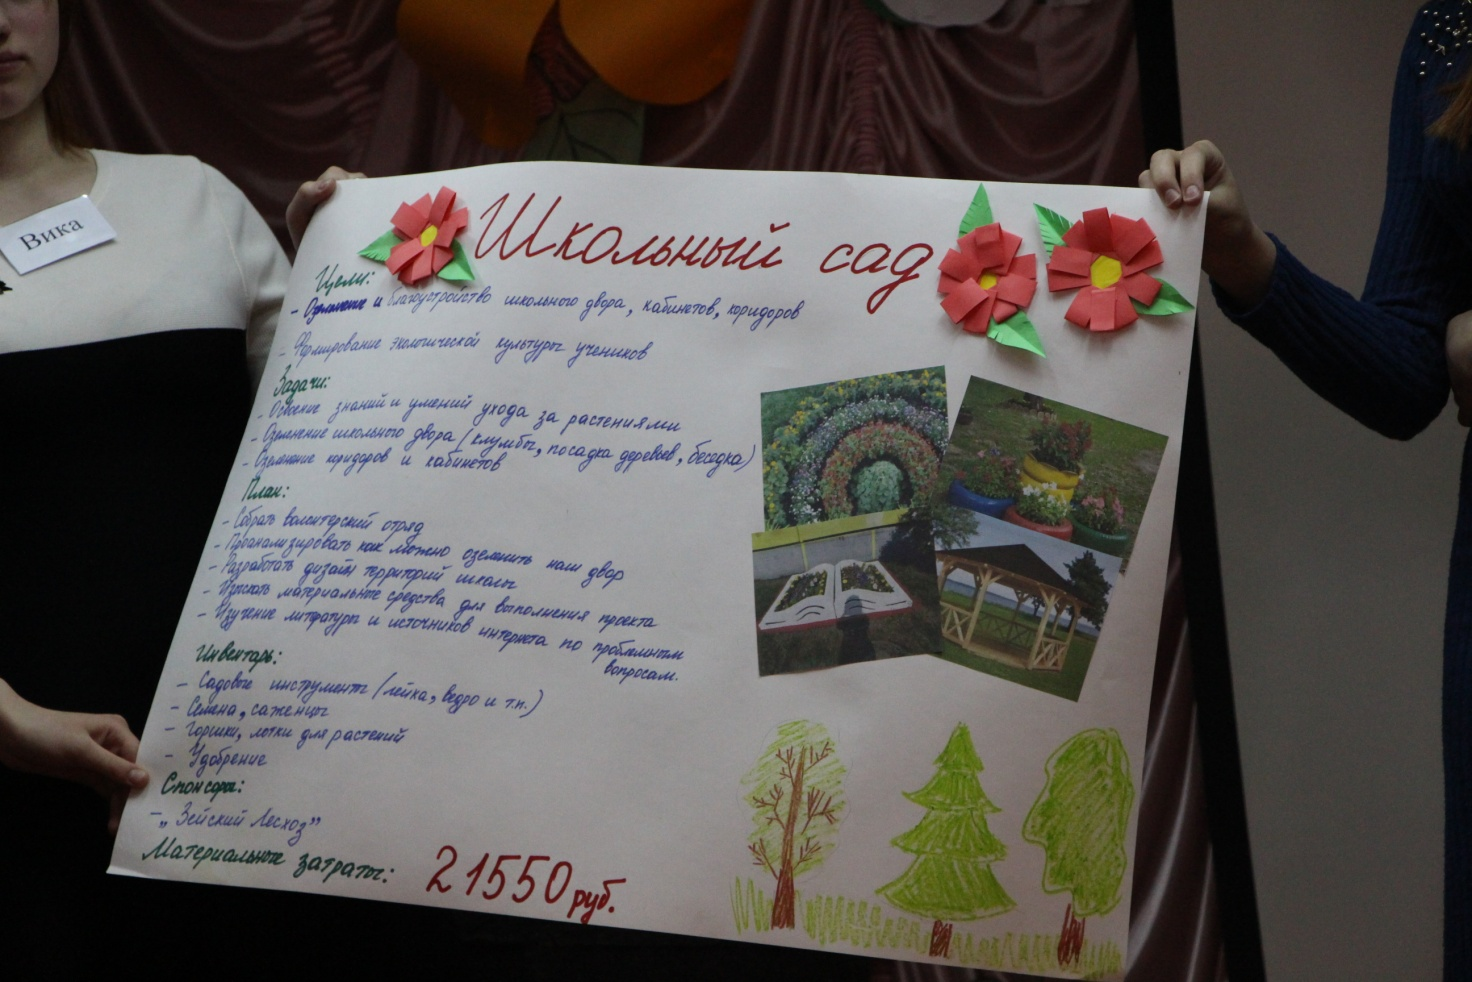 Вика
Школьный сад
Цели:
- Озеленение и благоустройство школьного двора, кабинетов, коридоров
- Формирование экологической культуры учеников
Задачи:
- Освоение знаний и умений ухода за растениями
- Озеленение школьного двора (клумбы, посадка деревьев, беседка)
- Озеленение коридоров и кабинетов
План:
- Собрать волонтерский отряд
- Проанализировать как можно озеленить наш двор
- Разработать дизайн территорий школы
- Изыскать материальные средства для выполнения проекта
- Изучение литературы и источников интернета по проблемным
вопросам.
Инвентарь:
- Садовые инструменты (лейка, ведро и т.п.)
- Семена, саженцы
- Горшки, лотки для растений
- Удобрение
Спонсоры:
- „Зейский Лесхоз”
Материальные затраты: 21550 руб.